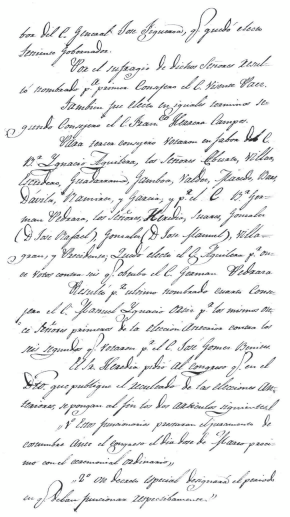 bor del C. General José Figueroa, q.e quedó electo
teniente Gobernador.
Por el sufragio de dichos Señores resul-
tó nombrado p.a primer Consejero el C. Vicente
Tambien fue electo en iguales terminos se-
gundo Consejero el C. Fran.co Herrera Campos.
Para tercer consejero votaron en fabor del C.
B.r Ignacio Aguilera, los Señores Villar,
Escudero, Guadarrama, Gamboa, Valdes, Macedo,
Dávila, Ramirez, y Garcia, y p.r el C. B.r Ger-
man los Señores Heredia, Suares, Gonzales
(D. José Rafael), Gonzales (D. José Manuel), Villa-
gran, y Presidente. Quedó electo el C. Aguilera p.r on-
ce votos contra seis q.e obtubo el C. German
Resultó p.r ultimo nombrado cuarto Conse-
jero el C. Manuel Ignacio p.r los mismos on-
ce Señores primeros de la elección Anterior contra los
seis segundos q.e votaron p.r el C. José Gomes
El Sr. Heredia pidió al congreso q.e en el
Dto. que publique el resultado de las elecciones An-
teriores, se pongan al fin los dos articulos siguientes
"1.o Estos funcionarios prestaran el juramento de
costumbre ante el congreso el dia doce de Marzo procsi
mo con el ceremonial ordinario„
"2.o Un decreto especial designará el periodo
en q.e deban funcionar respectivamente."